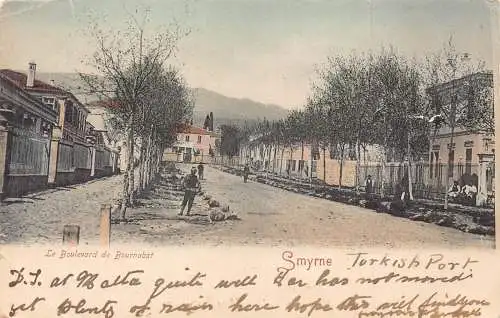 Le Boulevard de Bournabat
Smyrne
Turkish Port
D.J. at Malta quite well Dar has not moved
yet Plenty of rain here Hope this will find you